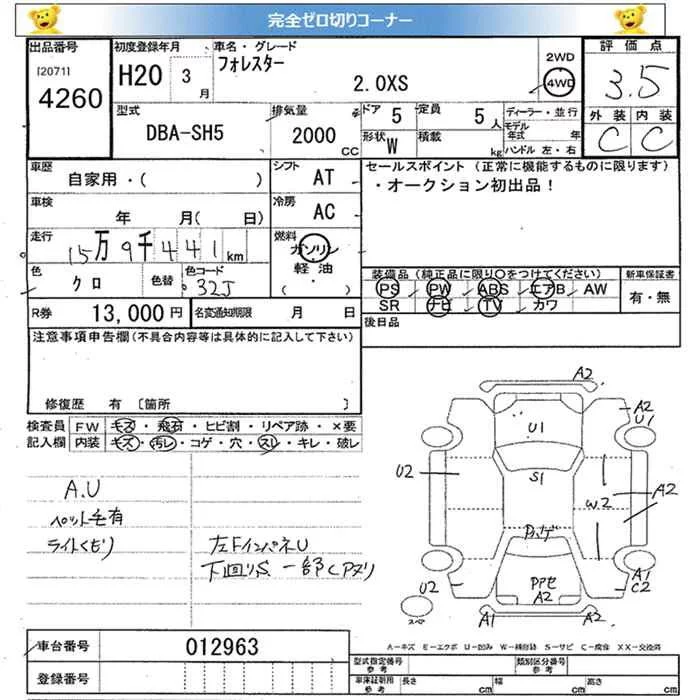 完全ゼロ切りコーナー
出品番号 初度登録年月 車名・グレード 評価点
[2071] フォレスター 2WD
4260 H20 3月 2.0XS 4WD 3.5
型式 排気量 ドア 5 定員 5人 ディーラー・並行 外装 内装
DBA-SH5 2000CC 形状 W 積載 kg モデル年式 年 C C
ハンドル 左・右
車歴 シフト セールスポイント (正常に機能するものに限ります)
自家用・( ) AT ・オークション初出品!
車検 冷房
年 月( 日) AC
走行 燃料
15万9千441km ガソリン
色 色替 色コード 軽油 装備品 (純正品に限り○をつけてください) 新車保証書
クロ 32J ・( ) PS PW ABS エアB AW 有・無
R券 13,000円 名変通知期限 月 日 SR ナビ TV カワ
注意事項申告欄(不具合内容等は具体的に記入して下さい) 後日品
修復歴 有 〔箇所 〕
検査員 FW キズ・飛石・ヒビ割・リペア跡・×要
記入欄 内装 キズ・汚レ・コゲ・穴・スレ・キレ・破レ
A.U
ペット毛有
ライトくもり 左FインパネU
下回りS 一部Cアメリ
A2
A2
U1 U1
U2 S1 A2
W2
U2 A2 A1 C2
A1 A2
スペア
A−キズ E−エクボ U−凹み W−補修跡 S−サビ C−腐食 XX−交換済
車台番号 012963
登録番号 型式指定番号 参考 類別区分番号 参考
車庫証明用 参考 長さ cm 幅 cm 高さ cm